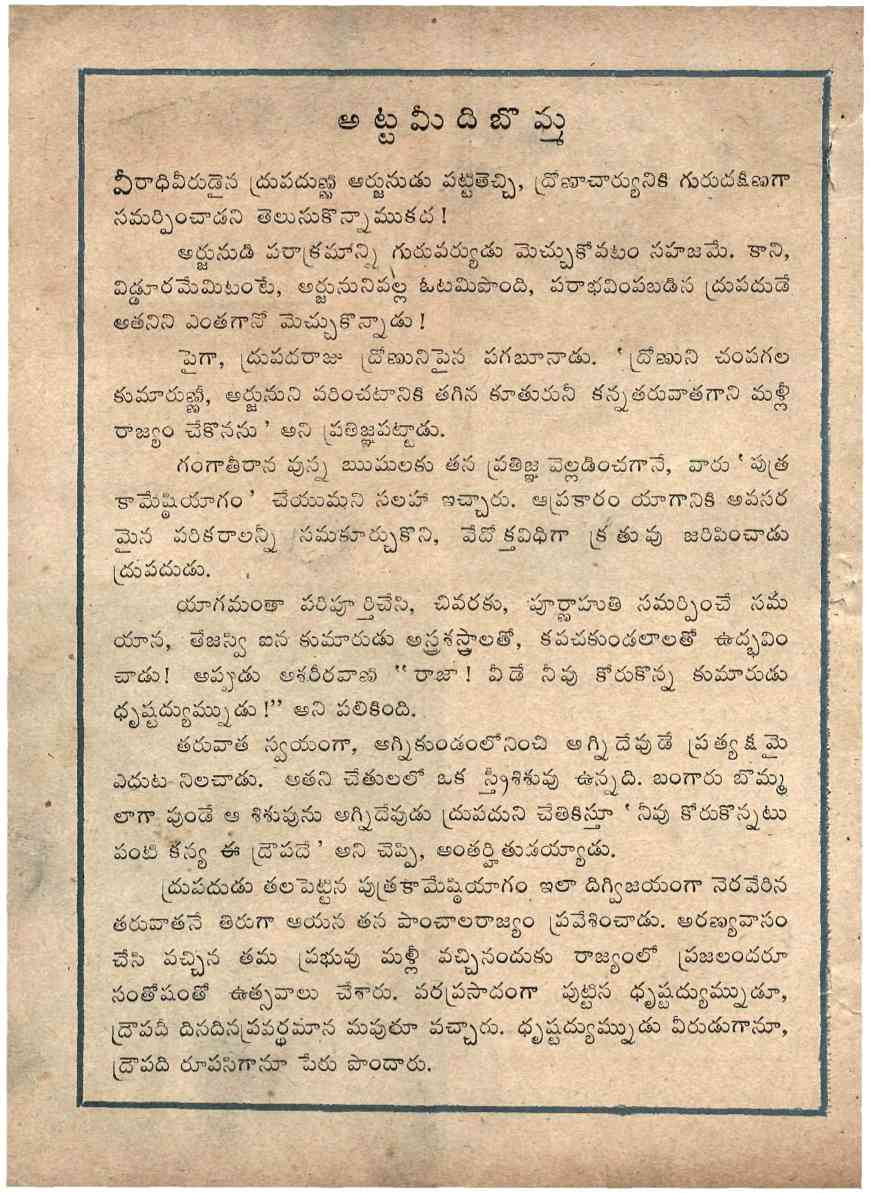 అట్టమీదిబొమ్మ
వీరాధివీరుడైన ద్రుపదుణ్ణి అర్జునుడు పట్టితెచ్చి, ద్రోణాచార్యునికి గురుదక్షిణగా
సమర్పించాడని తెలుసుకొన్నాముకద!
అర్జునుడి పరాక్రమాన్ని గురువర్యుడు మెచ్చుకోవటం సహజమే. కాని,
విడ్డూరమేమిటంటే, అర్జునునివల్ల ఓటమిపొంది, పరాభవింపబడిన ద్రుపదుడే
అతనిని ఎంతగానో మెచ్చుకొన్నాడు!
పైగా, ద్రుపదరాజు ద్రోణునిపైన పగబూనాడు. ‘ద్రోణుని చంపగల
కుమారుణ్ణీ, అర్జునుని వరించటానికి తగిన కూతురునీ కన్నతరువాతగాని మళ్లీ
రాజ్యం చేకొనను’ అని ప్రతిజ్ఞపట్టాడు.
గంగాతీరాన వున్న ఋషులకు తన ప్రతిజ్ఞ వెల్లడించగానే, వారు ‘పుత్ర
కామేష్ఠియాగం’ చేయుమని సలహా ఇచ్చారు. ఆప్రకారం యాగానికి అవసర
మైన పరికరాలన్నీ సమకూర్చుకొని, వేదోక్తవిధిగా క్రతువు జరిపించాడు
ద్రుపదుడు.
యాగమంతా పరిపూర్తిచేసి, చివరకు, పూర్ణాహుతి సమర్పించే సమ
యాన, తేజస్వి ఐన కుమారుడు అస్త్రశస్త్రాలతో, కవచకుండలాలతో ఉద్భవిం
చాడు! అప్పుడు అశరీరవాణి “రాజా! వీడే నీవు కోరుకొన్న కుమారుడు
ధృష్టద్యుమ్నుడు!” అని పలికింది.
తరువాత స్వయంగా, అగ్నికుండంలోనించి అగ్నిదేవుడే ప్రత్యక్షమై
ఎదుట నిలచాడు. అతని చేతులలో ఒక స్త్రీశిశువు ఉన్నది. బంగారు బొమ్మ
లాగా వుండే ఆ శిశువును అగ్నిదేవుడు ద్రుపదుని చేతికిస్తూ ‘నీవు కోరుకొన్నటు
వంటి కన్య ఈ ద్రౌపదే’ అని చెప్పి, అంతర్హితుడయ్యాడు.
ద్రుపదుడు తలపెట్టిన పుత్రకామేష్ఠియాగం ఇలా దిగ్విజయంగా నెరవేరిన
తరువాతనే తిరుగా ఆయన తన పాంచాలరాజ్యం ప్రవేశించాడు. అరణ్యవాసం
చేసి వచ్చిన తమ ప్రభువు మళ్లీ వచ్చినందుకు రాజ్యంలో ప్రజలందరూ
సంతోషంతో ఉత్సవాలు చేశారు. వరప్రసాదంగా పుట్టిన ధృష్టద్యుమ్నుడూ,
ద్రౌపదీ దినదినప్రవర్థమాన మవుతూ వచ్చారు. ధృష్టద్యుమ్నుడు వీరుడుగానూ,
ద్రౌపది రూపసిగానూ పేరు పొందారు.